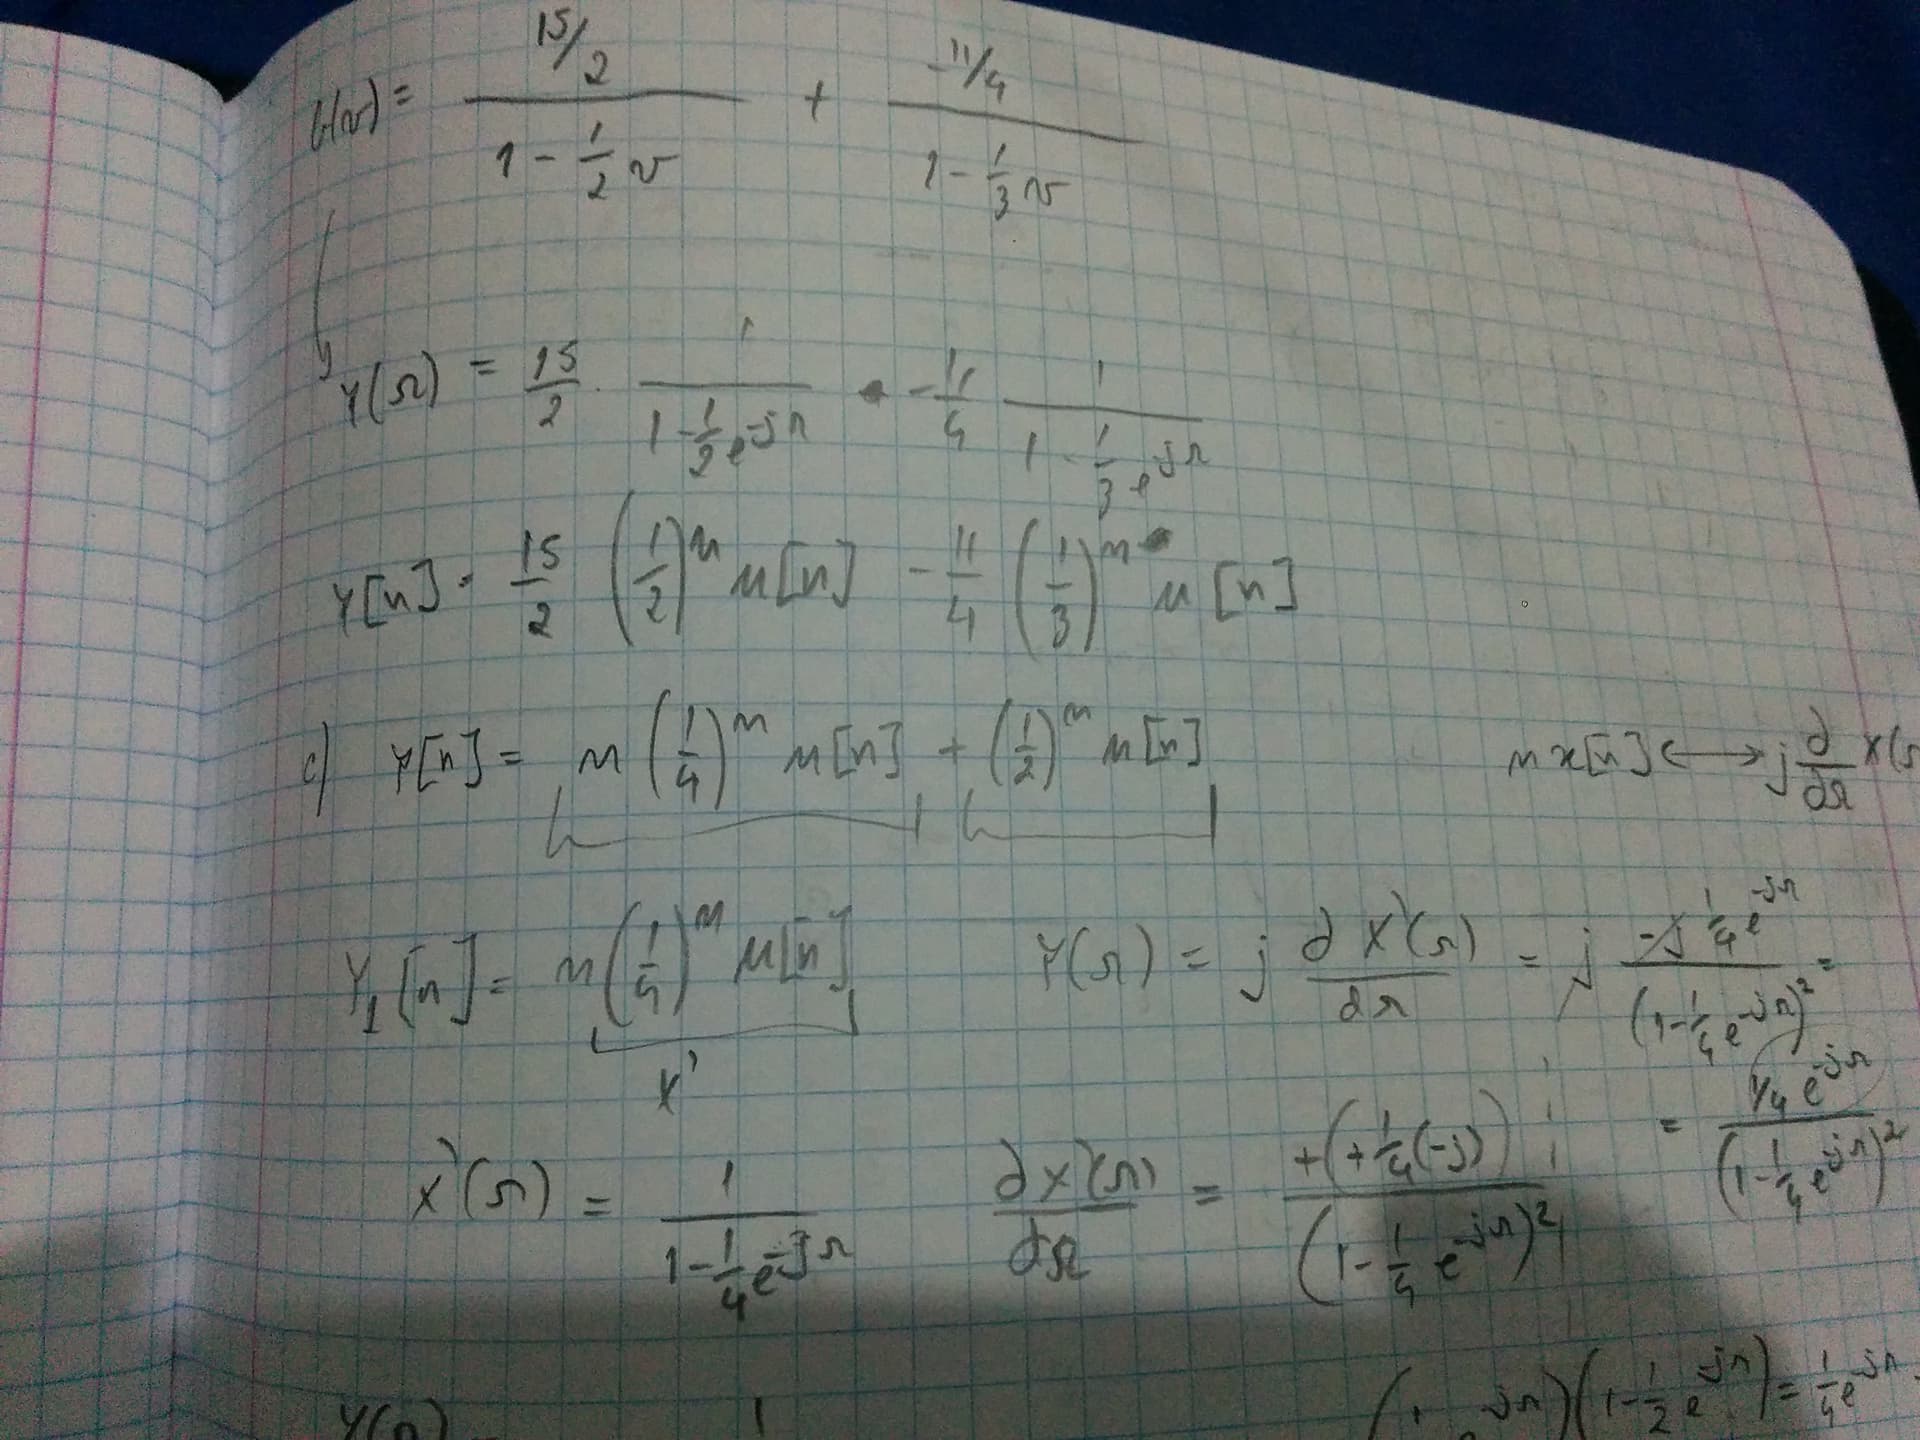 = (15/2)/(1 - 1/2 v) + (-11/4)/(1 - 1/3 v)
Y(Ω) = 15/2 · 1/(1 - 1/2 e^-jΩ) - 11/4 1/(1 - 1/3 e^jΩ)
Y[n] = 15/2 (1/2)^n u[n] - 11/4 (1/3)^n u[n]
c) Y[n] = n (1/4)^n u[n] + (1/2)^n u[n] n x[n] ⟷ j d/dΩ X(
Y1[n] = n (1/4)^n u[n] Y(Ω) = j dX'(Ω)/dΩ = j (-j 1/4 e^-jΩ)/(1 - 1/4 e^-jΩ)^2 =
X'
= (1/4 e^-jΩ)/(1 - 1/4 e^-jΩ)^2
X'(Ω) = 1/(1 - 1/4 e^-jΩ) dX'(Ω)/dΩ = +(+1/4(-j))/(1 - 1/4 e^-jΩ)^2
(1 - 1/2 e^-jΩ) = 1/4 e^-jΩ